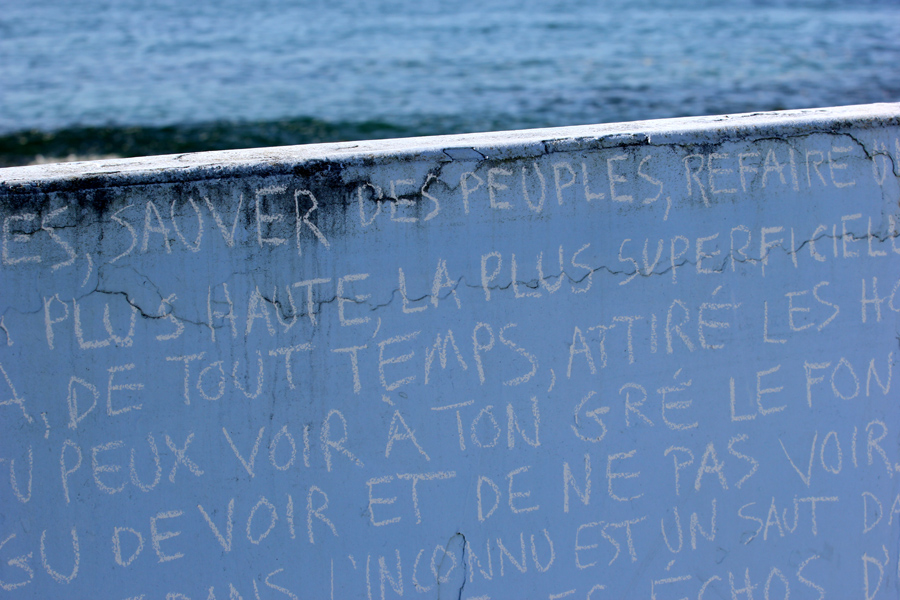 ES, SAUVER DES PEUPLES, REFAIRE
PLUS HAUTE, LA PLUS SUPERFICIELL
A, DE TOUT TEMPS, ATTIRÉ LES HO
U PEUX VOIR À TON GRÉ LE FON
GU DE VOIR ET DE NE PAS VOIR.
L'INCONNU EST UN SAUT DA
ÉCHOS D'